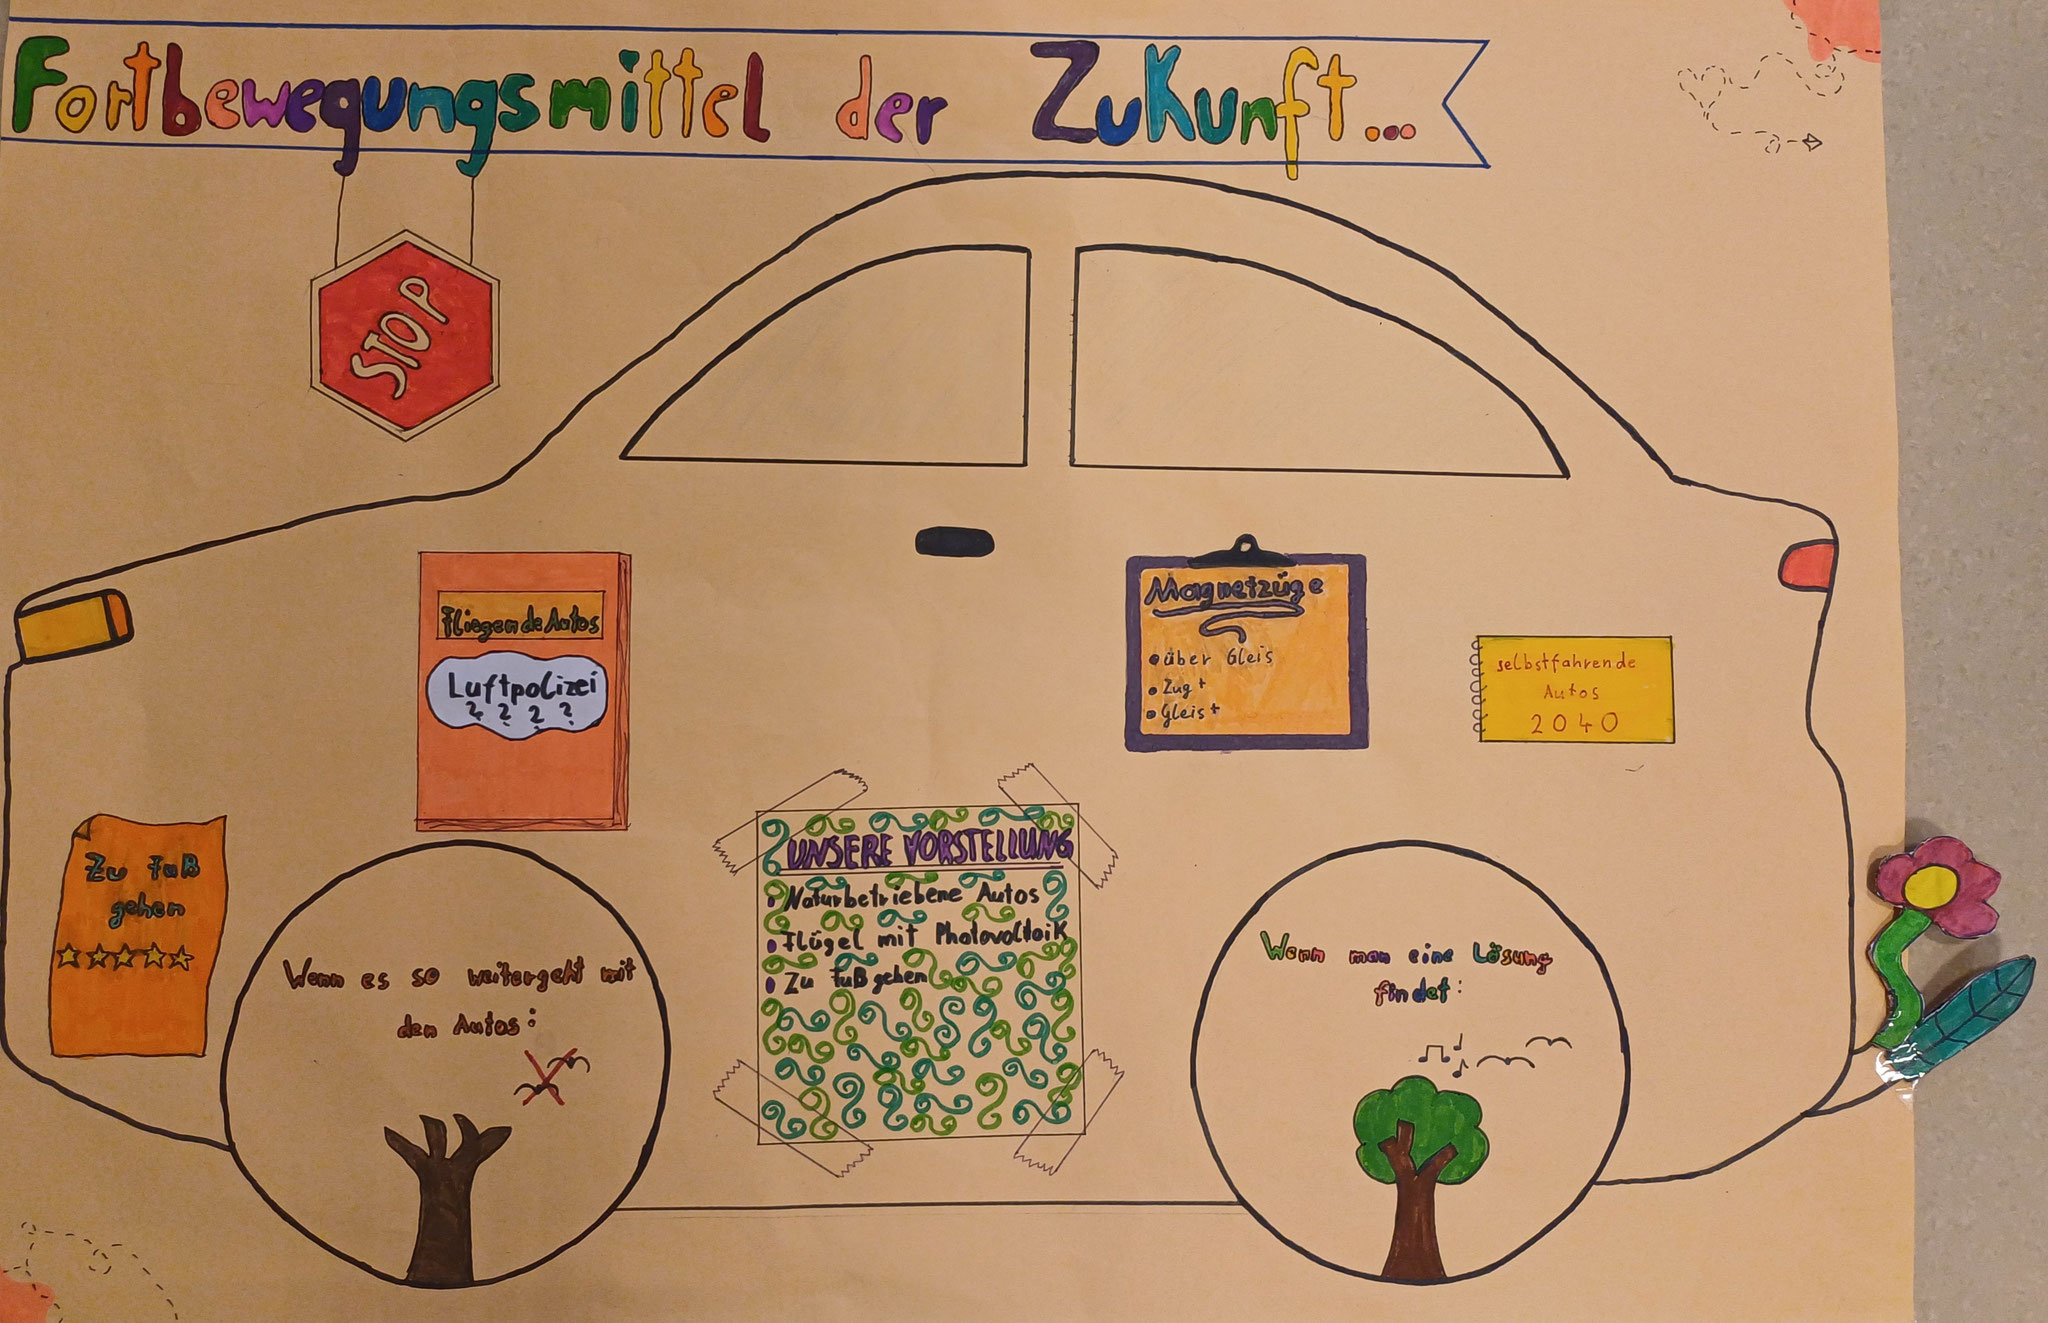 Fortbewegungsmittel der Zukunft...
STOP
Fliegende Autos
Luftpolizei
? ? ? ?
Magnetzüge
• über Gleis
• Zug +
• Gleis +
selbstfahrende
Autos
2040
Zu Fuß
gehen
UNSERE VORSTELLUNG
• Naturbetriebene Autos
• Flügel mit Photovoltaik
• Zu Fuß gehen
Wenn es so weitergeht mit
den Autos:
Wenn man eine Lösung
findet: